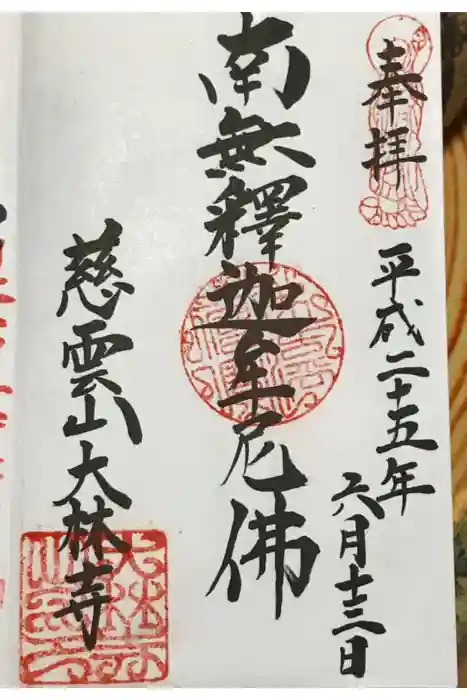 奉拝
平成二十五年
六月十三日
南無釋迦牟尼佛
慈雲山大林寺